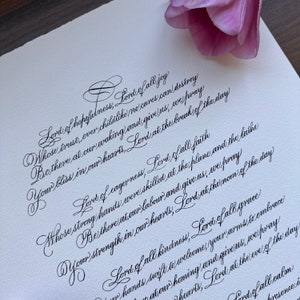 Lord of all hopefulness, Lord of all joy
Whose trust, ever childlike no cares can destroy
Be there at our waking and give us, we pray
Your bliss in our hearts, Lord, at the break of the day
Lord of all eagerness, Lord of all faith
Whose strong hands were skilled at the plane and the lathe
Be there at our labour and give us, we pray
Your strength in our hearts, Lord, at the noon of the day
Lord of all kindness, Lord of all grace
hands swift to welcome your arms to embrace
at our homing and give us, we pray
hearts, Lord, at the eve of the day
Lord of all calm